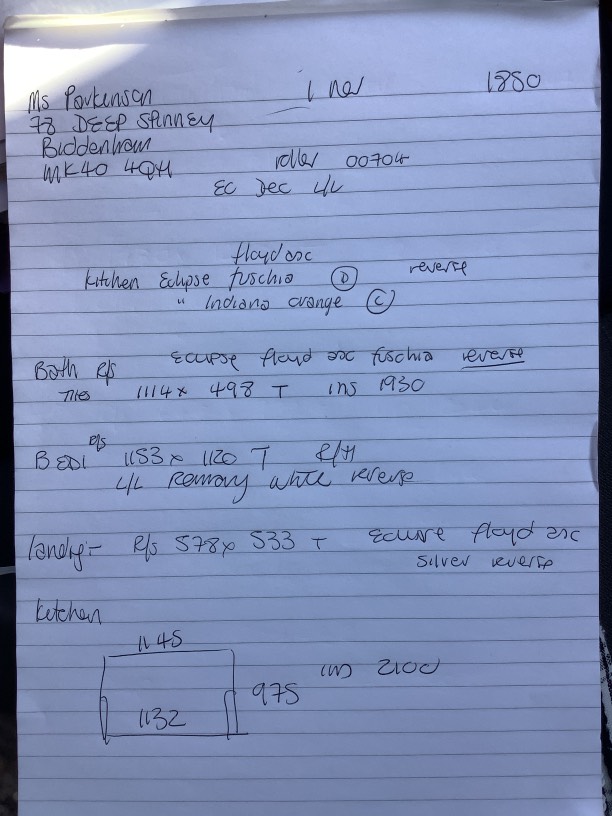 Ms Parkinson 1 Nov 1850
78 DEEP SPINNEY
Biddenham
MK40 4QH roller 00704
EC Dec L/L
floyd asc
Kitchen Eclipse fuschia D reverse
" Indiana orange C
Both R/s Eclipse floyd asc fuschia reverse
Tiles 1114 x 498 T ins 1930
BED1 R/s 1153 x 1120 T R/H
L/L white reverse
landing - R/s 578 x 533 T Eclipse floyd asc
silver reverse
Kitchen
1145
ins 2100
975
1132